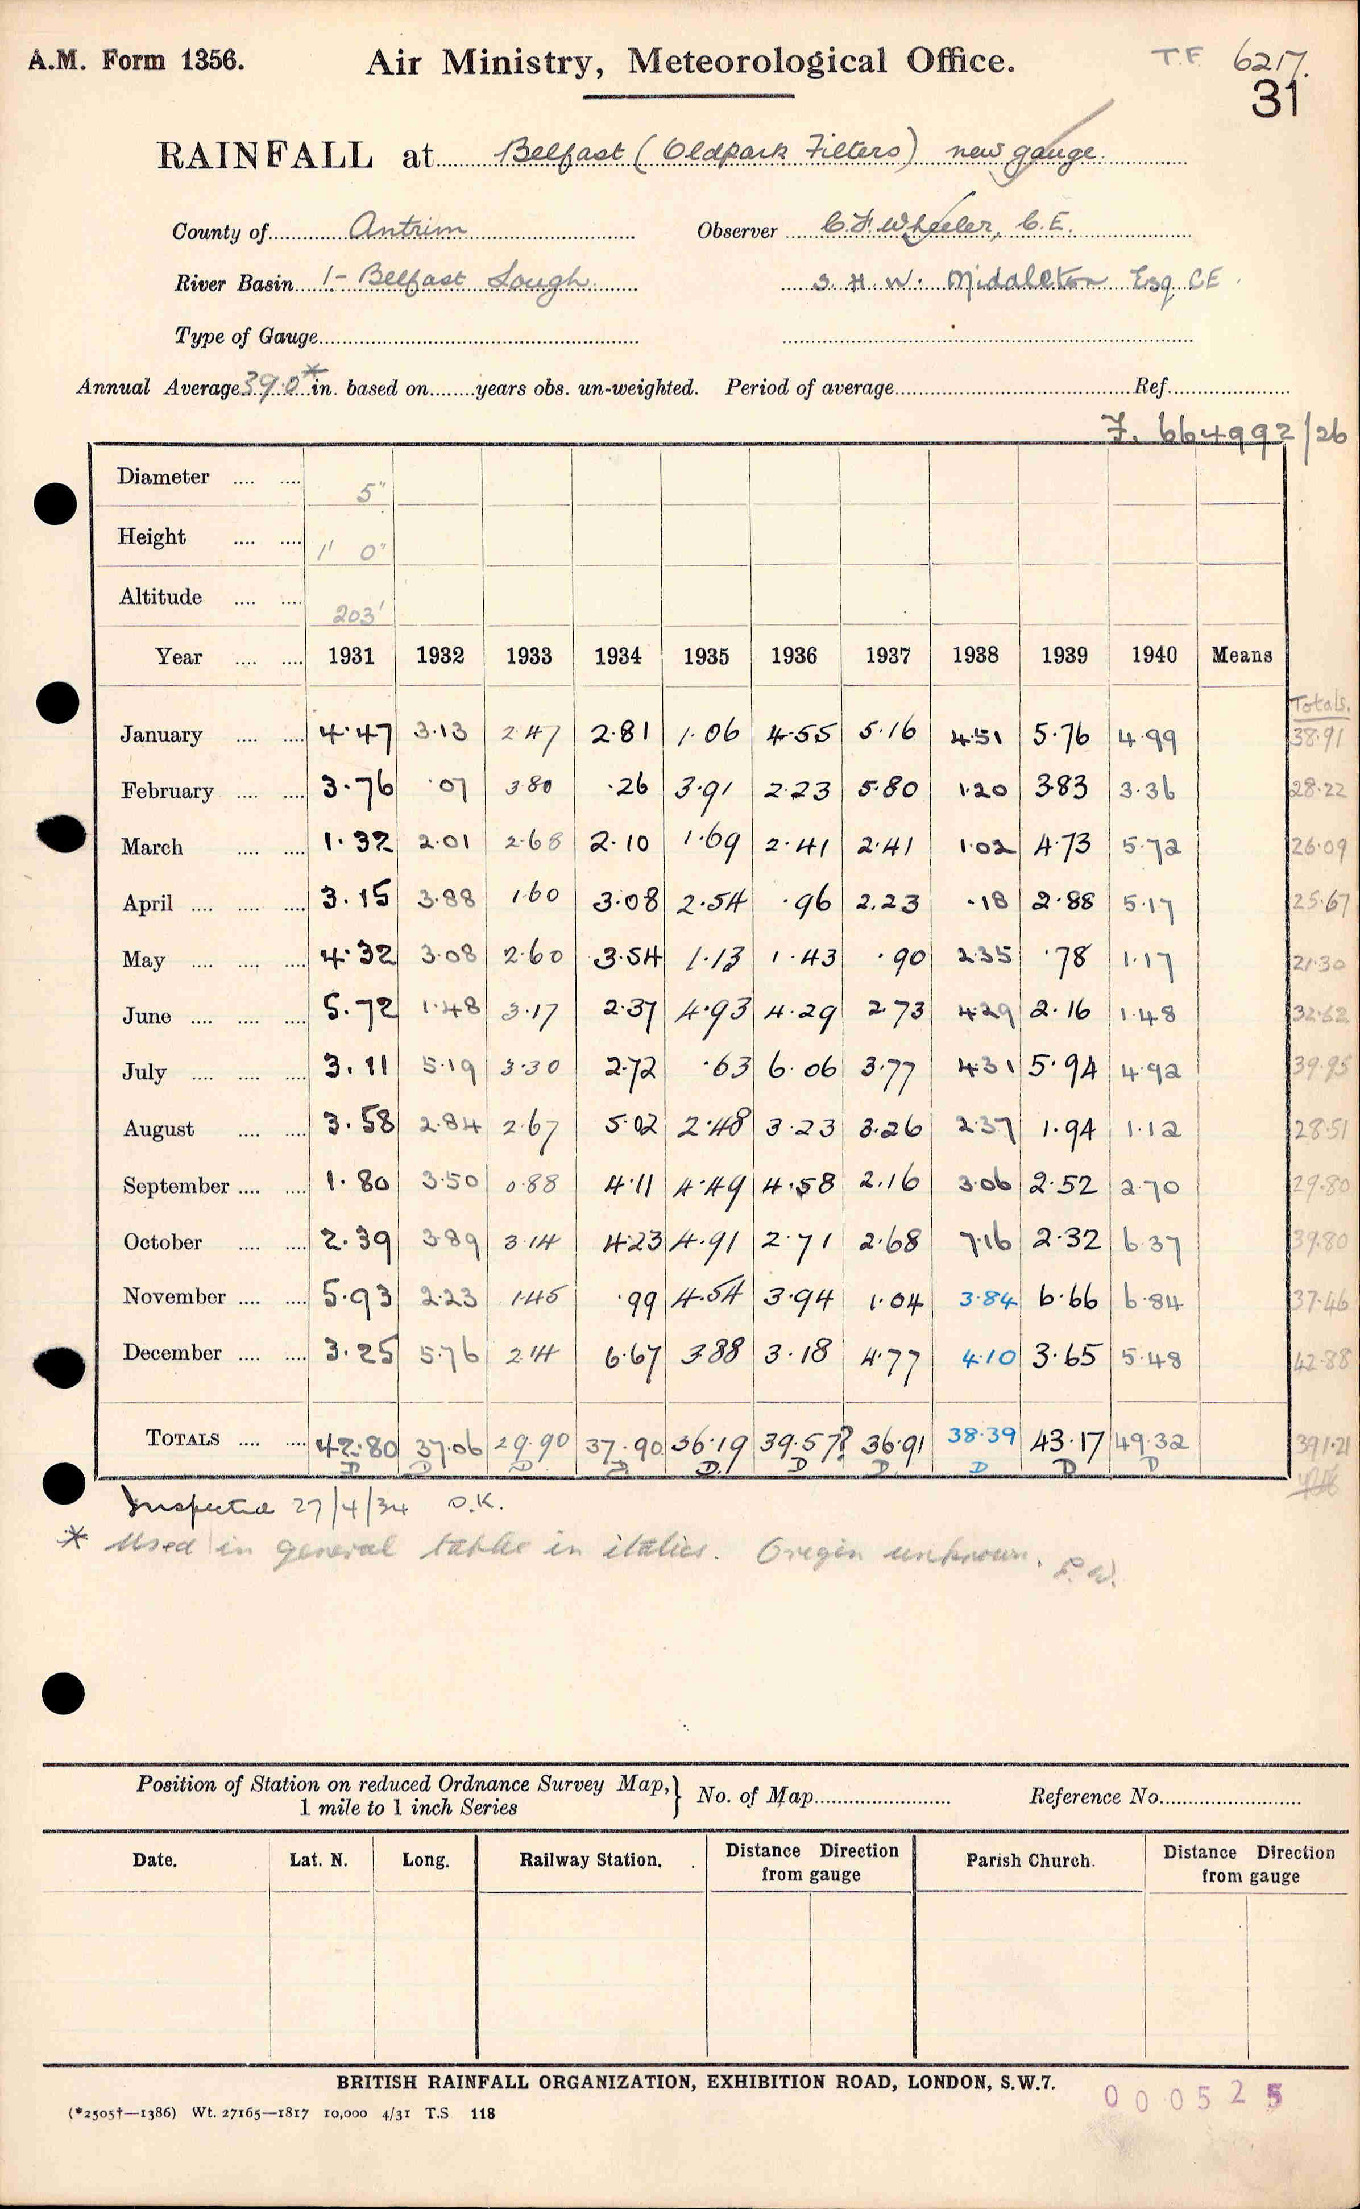 A.M. Form 1356.
Air Ministry, Meteorological Office.
T.F 6217.
31
RAINFALL at Belfast (Oldpark Filters) new gauge.
County of Antrim Observer C.F. Wheeler, C.E.
River Basin 1- Belfast Lough S. H. W. Middleton Esq CE.
Type of Gauge
Annual Average 39.0* in. based on years obs. un-weighted. Period of average Ref.
F. 664992/26
Diameter .... .... 5"
Height .... .... 1' 0"
Altitude .... .... 203'
Year .... .... 1931 1932 1933 1934 1935 1936 1937 1938 1939 1940 Means
Totals.
January .... .... 4.47 3.13 2.47 2.81 1.06 4.55 5.16 4.51 5.76 4.99 38.91
February .... .... 3.76 .07 3.80 .26 3.91 2.23 5.80 1.20 3.83 3.36 28.22
March .... .... 1.32 2.01 2.68 2.10 1.69 2.41 2.41 1.02 4.73 5.72 26.09
April .... .... .... 3.15 3.88 1.60 3.08 2.54 .96 2.23 .18 2.88 5.17 25.67
May .... .... .... 4.32 3.08 2.60 3.54 1.13 1.43 .90 2.35 .78 1.17 21.30
June .... .... .... 5.72 1.48 3.17 2.37 4.93 4.29 2.73 4.29 2.16 1.48 32.62
July .... .... .... 3.11 5.19 3.30 2.72 .63 6.06 3.77 4.31 5.94 4.92 39.95
August .... .... 3.58 2.84 2.67 5.02 2.48 3.23 3.26 2.37 1.94 1.12 28.51
September .... .... 1.80 3.50 0.88 4.11 4.49 4.58 2.16 3.06 2.52 2.70 29.80
October .... .... 2.39 3.89 3.14 4.23 4.91 2.71 2.68 7.16 2.32 6.37 39.80
November .... .... 5.93 2.23 1.45 .99 4.54 3.94 1.04 3.84 6.66 6.84 37.46
December .... .... 3.25 5.76 2.14 6.67 3.88 3.18 4.77 4.10 3.65 5.48 42.88
TOTALS .... .... 42.80 37.06 29.90 37.90 36.19 39.57? 36.91 38.39 43.17 49.32 391.21
D D D D D. D D. D D D
Inspected 27/4/34 O.K.
* Used in general table in italics. Origin unknown. P.W.
Position of Station on reduced Ordnance Survey Map,} No. of Map Reference No.
1 mile to 1 inch Series
Date. Lat. N. Long. Railway Station. Distance Direction from gauge Parish Church. Distance Direction from gauge
BRITISH RAINFALL ORGANIZATION, EXHIBITION ROAD, LONDON, S.W.7.
000525
(*2505†—1386) Wt. 27165—1817 10,000 4/31 T.S 118